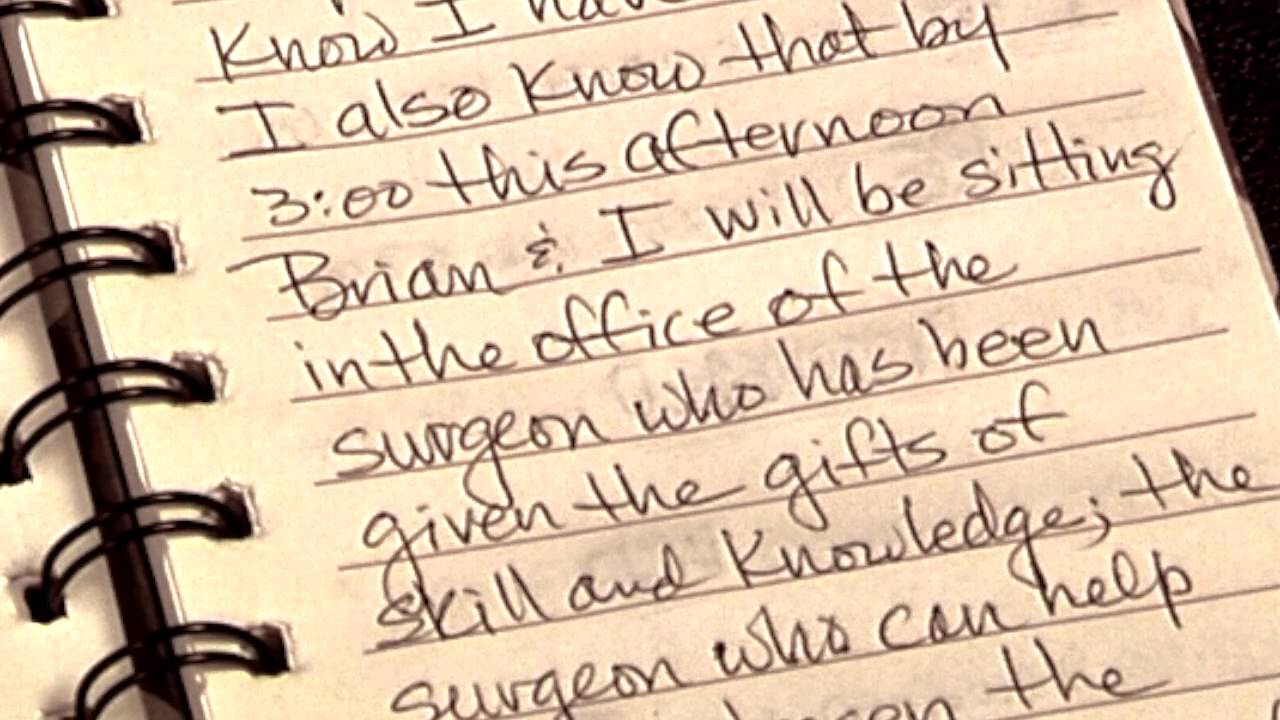 Know I have
I also Know that by
3:00 this afternoon
Brian & I will be sitting
in the office of the
surgeon who has been
given the gifts of
skill and Knowledge; the
surgeon who can help
the